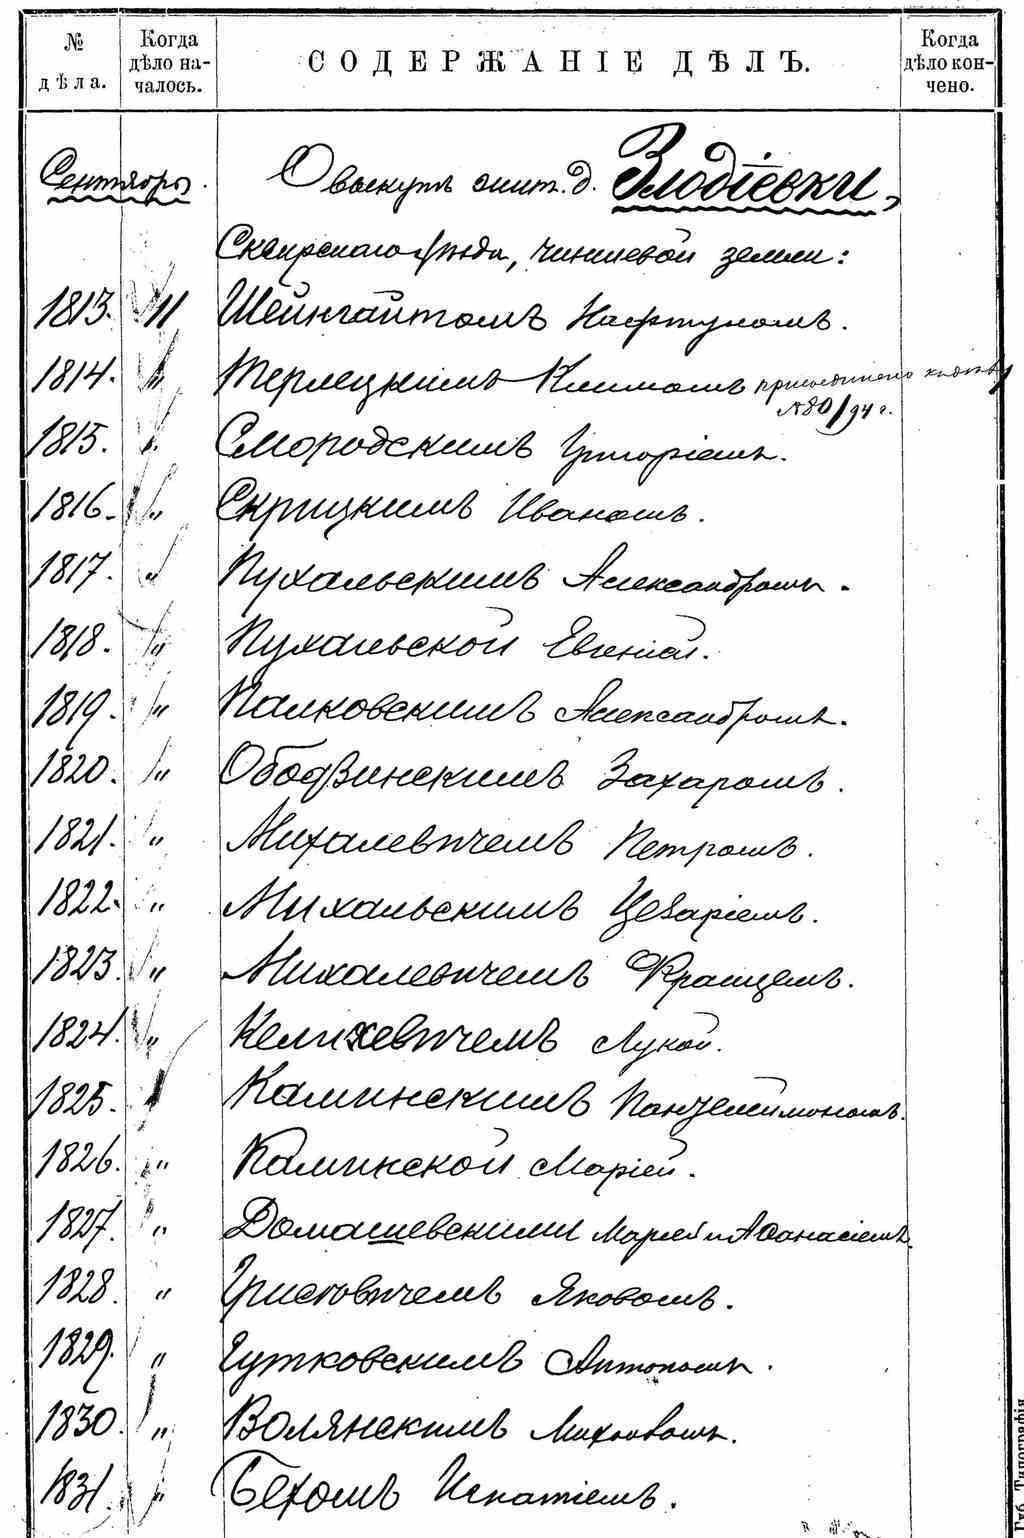 № дѣла.
Когда дѣло началось.
СОДЕРЖАНІЕ ДѢЛЪ.
Когда дѣло кончено.
Сентябрь. О выкупѣ жит. д. Злодіевки,
Сквирскаго уѣзда, чиншевой земли:
1813. 11 Шейнгайтомъ Нафтуломъ.
1814. " Терлецкимъ Климомъ присоединено къ дѣлу
№ 80/94 г.
1815. " Смородскимъ Григоріемъ.
1816. " Скрицкимъ Иваномъ.
1817. " Пухальскимъ Александромъ.
1818. " Пухальской Евгеніей.
1819. " Палковскимъ Александромъ.
1820. " Ободзинскимъ Захаромъ.
1821. " Михалевичемъ Петромъ.
1822. " Михальскимъ Цезаріемъ.
1823. " Михалевичемъ Францемъ.
1824. " Келихевичемъ Лукой.
1825. " Каминскимъ Пантелеимономъ.
1826. " Каминской Маріей.
1827. " Домашевскими Маріей и Афанасіемъ.
1828. " Григовичемъ Яковомъ.
1829. " Гутковскимъ Антономъ.
1830. " Волянскимъ
1831. " Бехомъ Игнатіемъ.
Губ. Типографія